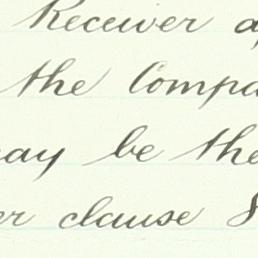 Receiver a
the Compa
ay be the
er clause 8